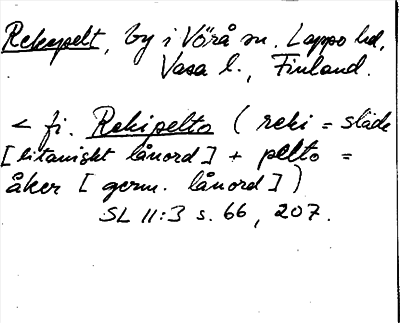 Rekepelt, by i Vörå sn. Lappo hd,
Vasa l., Finland.
< fi. Rekipelto ( reki = släde
[litauiskt lånord] + pelto =
åker [ germ. lånord ] )
SL 11:3 s. 66, 207.